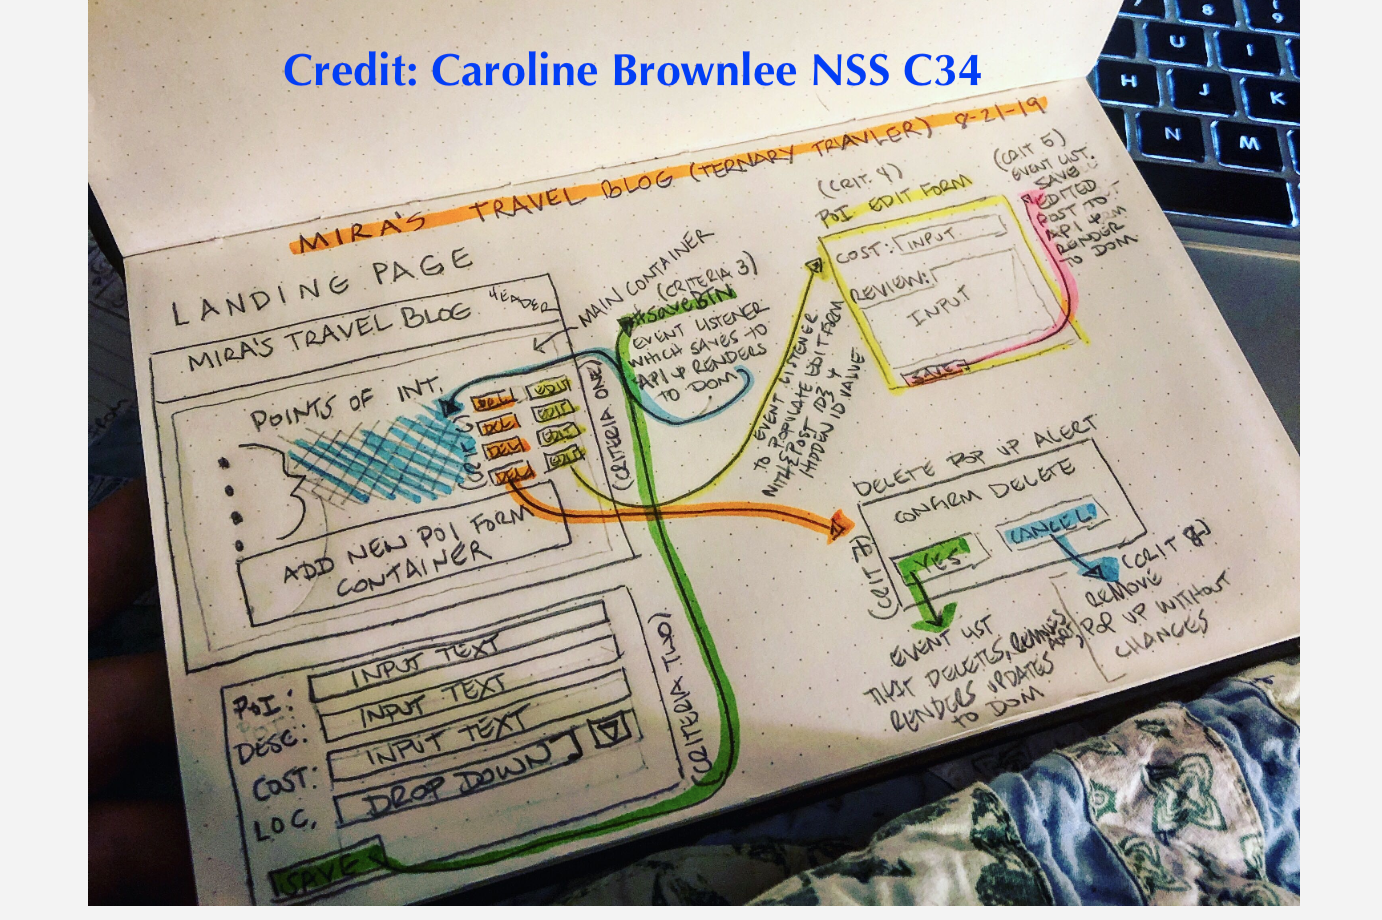 Credit: Caroline Brownlee NSS C34
MIRA'S TRAVEL BLOG (TERNARY TRAVLER) 8-21-19
LANDING PAGE
MIRA'S TRAVEL BLOG
HEADER
MAIN CONTAINER
POINTS OF INT.
DEL EDIT
DEL EDIT
DEL EDIT
DEL EDIT
(CRITERIA ONE)
ADD NEW POI FORM
CONTAINER
(CRITERIA 3)
#SAVEBTN
EVENT LISTENER
WHICH SAVES TO
API & RENDERS
TO DOM
POI: INPUT TEXT
DESC: INPUT TEXT
COST: INPUT TEXT
LOC. DROP DOWN
SAVE
(CRITERIA TWO)
TO EVENT LISTENER
TO POPULATE EDIT FORM
POST ID3 &
HIDDEN ID VALUE
(CRIT. 4)
POI EDIT FORM
COST: INPUT
REVIEW:
INPUT
SAVE
(CRIT 5)
EVENT LIST.
SAVE
EDITED
POST TO
API &
RENDER
TO DOM
DELETE POP UP ALERT
CONFIRM DELETE
YES
CANCEL
EVENT LIST
THAT DELETES,
RENDERS UPDATES
TO DOM
REMOVE
POP UP WITHOUT
CHANGES
7 8 9
U I
H J K
N M